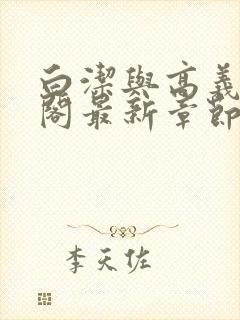 白潔與高義
閣最新章節
李天佐